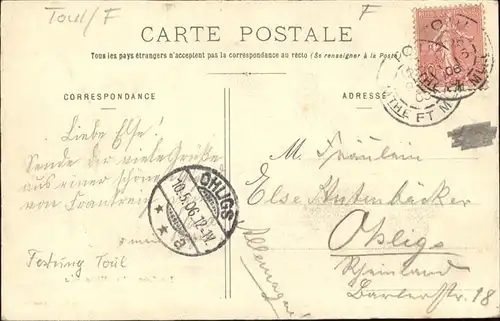 Toul/F
F
CARTE POSTALE
Tous les pays étrangers n'acceptent pas la correspondance au recto (Se renseigner à la Poste)
CORRESPONDANCE
ADRESSE
Liebe Else!
Sende dir viele Grüße
aus einer schönen
von Frankreich
Festung Toul
OHLIGS
10.5.06.12-1V
a
M. Fräulein
Else
Ohligs
Rheinland
18
Allemagne